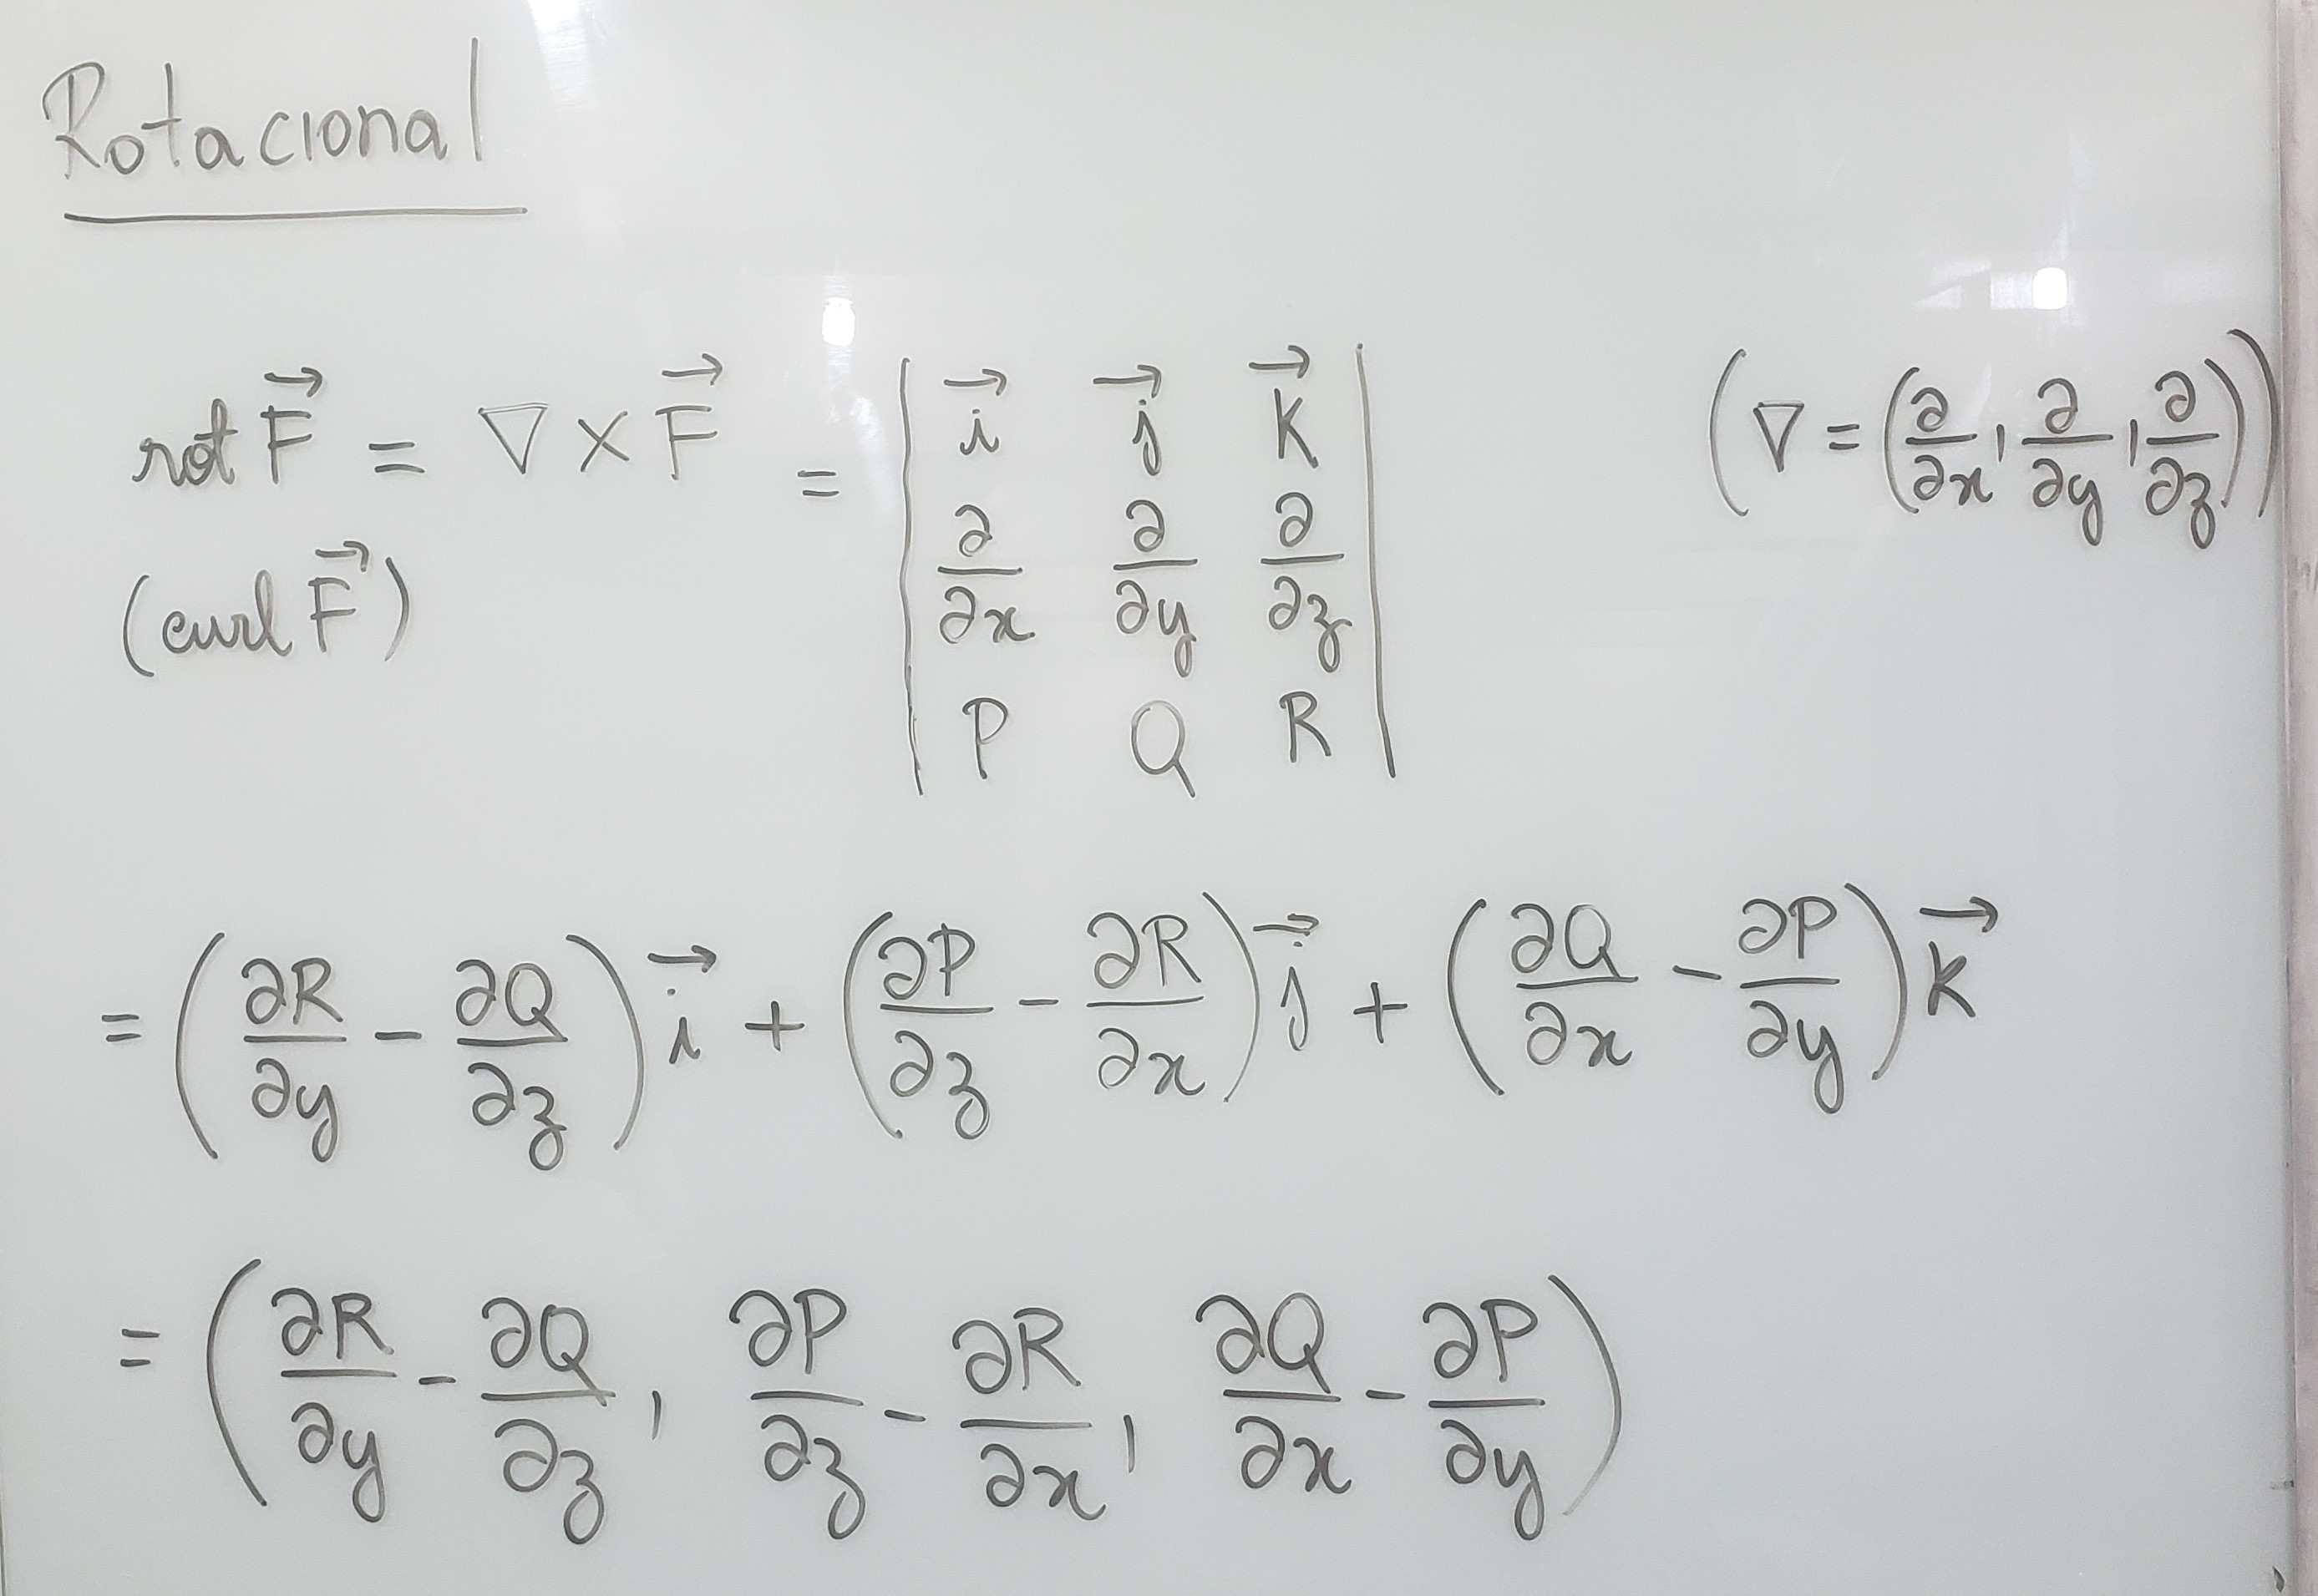 Rotacional
rot F⃗ = ∇ × F⃗ = | i⃗ j⃗ k⃗ ; ∂/∂x ∂/∂y ∂/∂z ; P Q R | (∇ = (∂/∂x, ∂/∂y, ∂/∂z))
(curl F⃗)
= (∂R/∂y − ∂Q/∂z) i⃗ + (∂P/∂z − ∂R/∂x) j⃗ + (∂Q/∂x − ∂P/∂y) k⃗
= (∂R/∂y − ∂Q/∂z, ∂P/∂z − ∂R/∂x, ∂Q/∂x − ∂P/∂y)